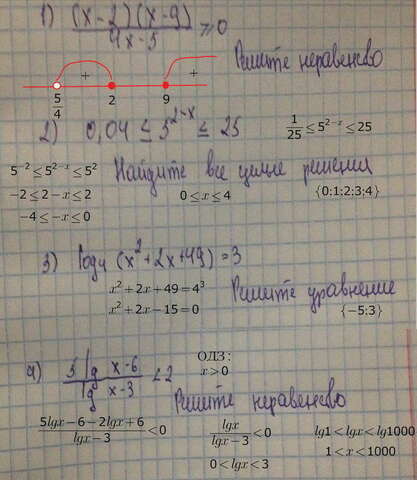 1) (x-2)(x-9)
4x-5
≥0
Решите неравенство
+ +
5/4 2 9
2) 0,04 ≤ 5^{2-x} ≤ 25
1/25 ≤ 5^{2-x} ≤ 25
5^{-2} ≤ 5^{2-x} ≤ 5^2
Найдите все целые решения
-2 ≤ 2-x ≤ 2
0 ≤ x ≤ 4
{0;1;2;3;4}
-4 ≤ -x ≤ 0
3) log₄ (x²+2x+49)=3
x²+2x+49=4³
Решите уравнение
x²+2x-15=0
{-5;3}
4) 5 lg x-6
lg x-3
<2
ОДЗ:
x>0
Решите неравенство
5lgx-6-2lgx+6
lgx-3
<0
lgx
lgx-3
<0
lg1<lgx<lg1000
0<lgx<3
1<x<1000